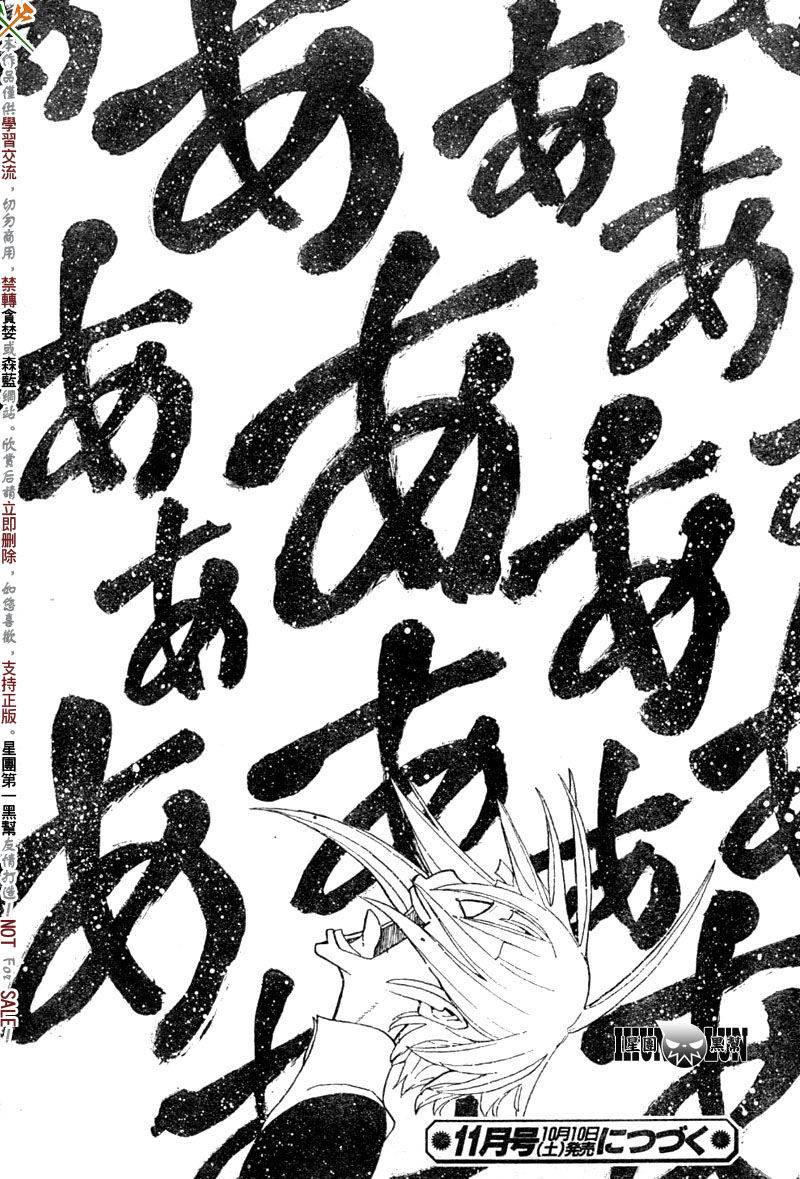 あ
あ
あ
あ
あ
あ
あ
あ
あ
あ
あ
あ
あ
あ
本作品僅供學習交流,切勿商用,禁轉貪婪或森藍網站。欣賞后請立即刪除,如您喜歡,支持正版。星團第一黑幫友情打造—NOT For SALE—
星團 黑幫
11月号 10月10日(土)発売 につづく